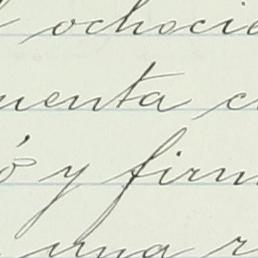 ochocie
uenta c
ó y firm
una r